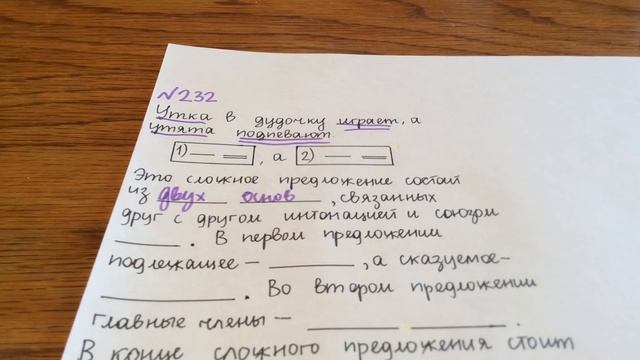 №232
Утка в дудочку играет, а
утята подпевают.
1) — = , а 2) — =
Это сложное предложение состоит
из двух основ, связанных
друг с другом интонацией и союзом
______. В первом предложении
подлежащее – ______, а сказуемое–
______. Во втором предложении
главные члены – ______.
В конце сложного предложения стоит